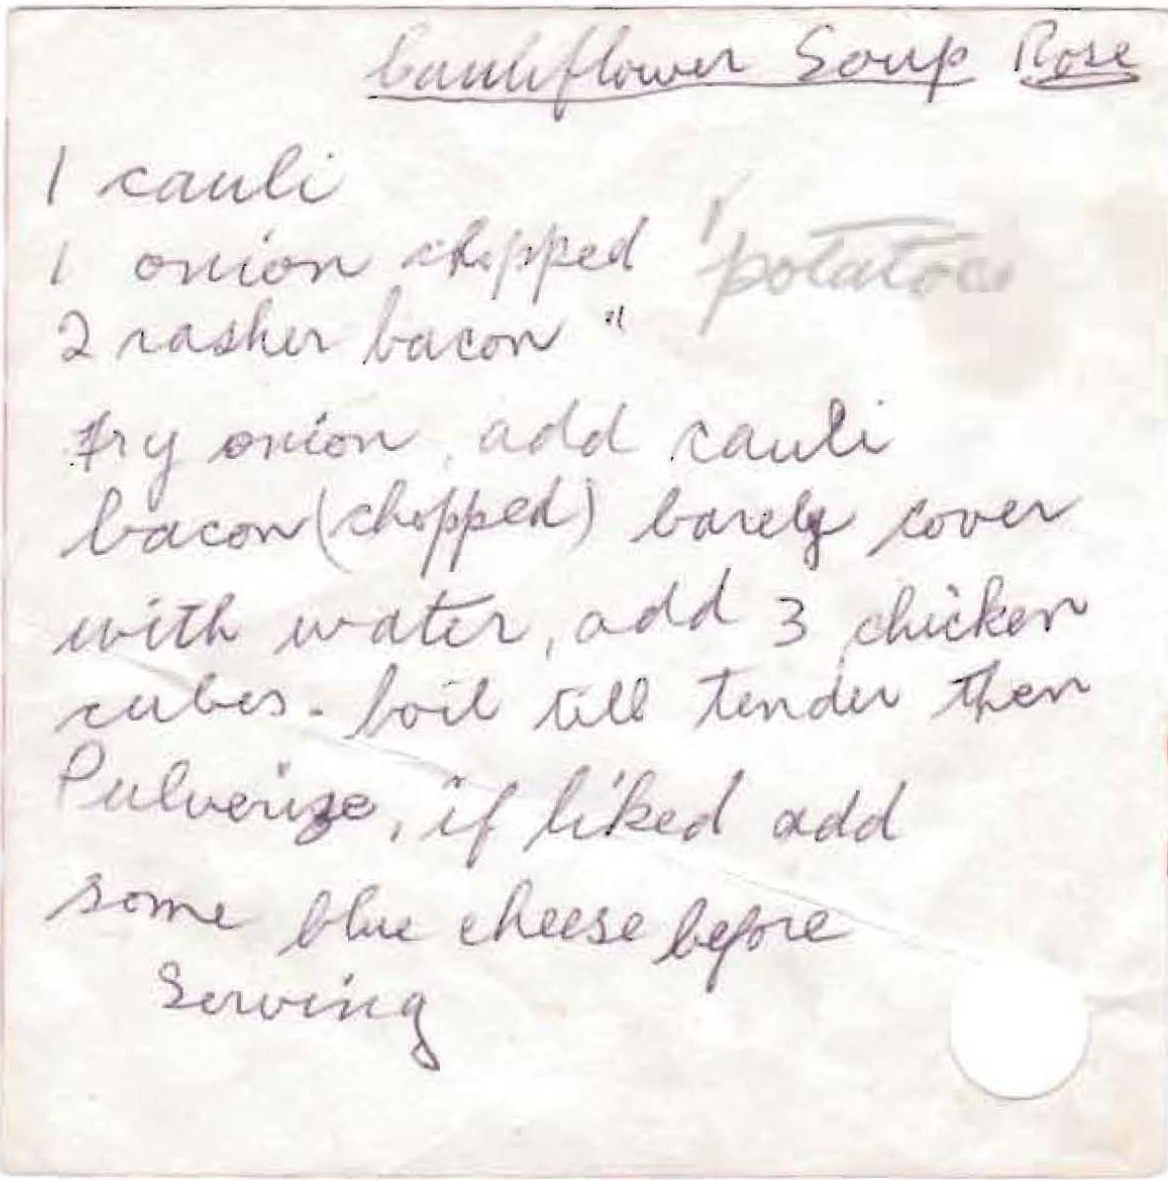 Cauliflower Soup Rose
1 cauli
1 onion chopped 1 potatoe
2 rasher bacon "
Fry onion, add cauli
bacon (chopped) barely cover
with water, add 3 chicken
cubes - boil till tender then
Pulverize, if liked add
some blue cheese before
Serving